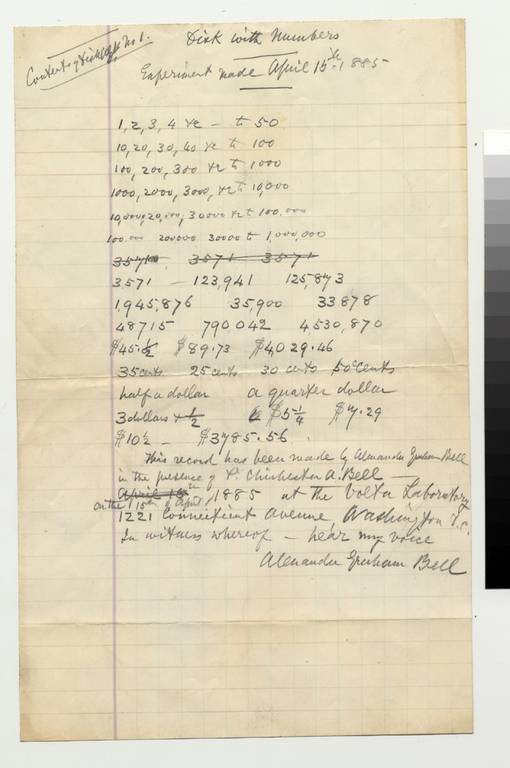 Contents of Disk No 1.
Disk with Numbers
Experiment made April 15th 1885
1, 2, 3, 4 &c — to 50
10, 20, 30, 40 &c to 100
100, 200, 300 &c to 1000
1000, 2000, 3000, &c to 10,000
10,000, 20,000, 30000 &c to 100.000
100.000 200000 30000 to 1,000,000
3571 3571
3,571 — 123,941 125,873
1,945,876 35,900 33878
48715 790042 4,530,870
$45.½ $89.73 $4,029.46
35 cents 25 cents 30 cents 50 cents
half a dollar a quarter dollar
3 dollars + ½ $5¼ $7.29
$10½ — $3785.56.
This record has been made by Alexander Graham Bell
in the presence of Dr. Chichester A. Bell —
April 15th
on the 15th of April, 1885 at the Volta Laboratory
1221 Connecticut Avenue, Washington D.C.
In witness whereof — hear my voice
Alexander Graham Bell